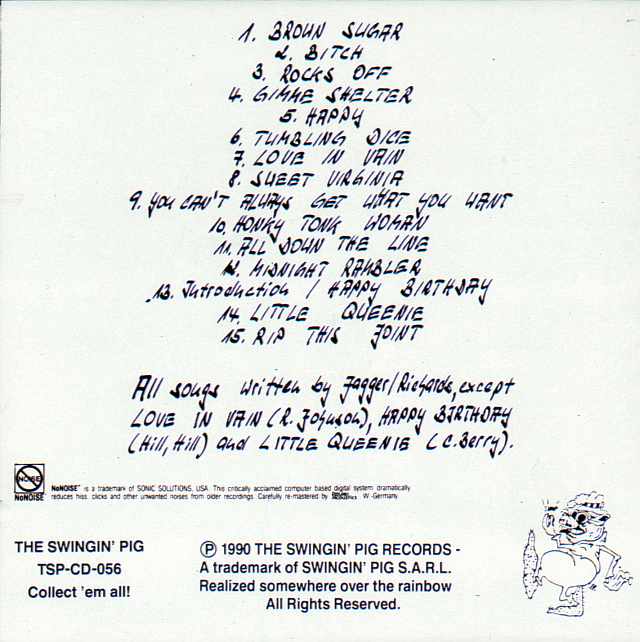 1. BROWN SUGAR
2. BITCH
3. ROCKS OFF
4. GIMME SHELTER
5. HAPPY
6. TUMBLING DICE
7. LOVE IN VAIN
8. SWEET VIRGINIA
9. YOU CAN'T ALWAYS GET WHAT YOU WANT
10. HONKY TONK WOMAN
11. ALL DOWN THE LINE
12. MIDNIGHT RAMBLER
13. Introduction / HAPPY BIRTHDAY
14. LITTLE QUEENIE
15. RIP THIS JOINT
All songs written by Jagger/Richards, except
LOVE IN VAIN (R. Johnson), HAPPY BIRTHDAY
(Hill, Hill) and LITTLE QUEENIE (C. Berry).
NOISE
NoNOISE
NoNOISE™ is a trademark of SONIC SOLUTIONS, USA. This critically acclaimed computer based digital system dramatically
reduces hiss, clicks and other unwanted noises from older recordings. Carefully re-mastered by W.-Germany
THE SWINGIN' PIG
TSP-CD-056
Collect 'em all!
Ⓟ 1990 THE SWINGIN' PIG RECORDS -
A trademark of SWINGIN' PIG S.A.R.L.
Realized somewhere over the rainbow
All Rights Reserved.